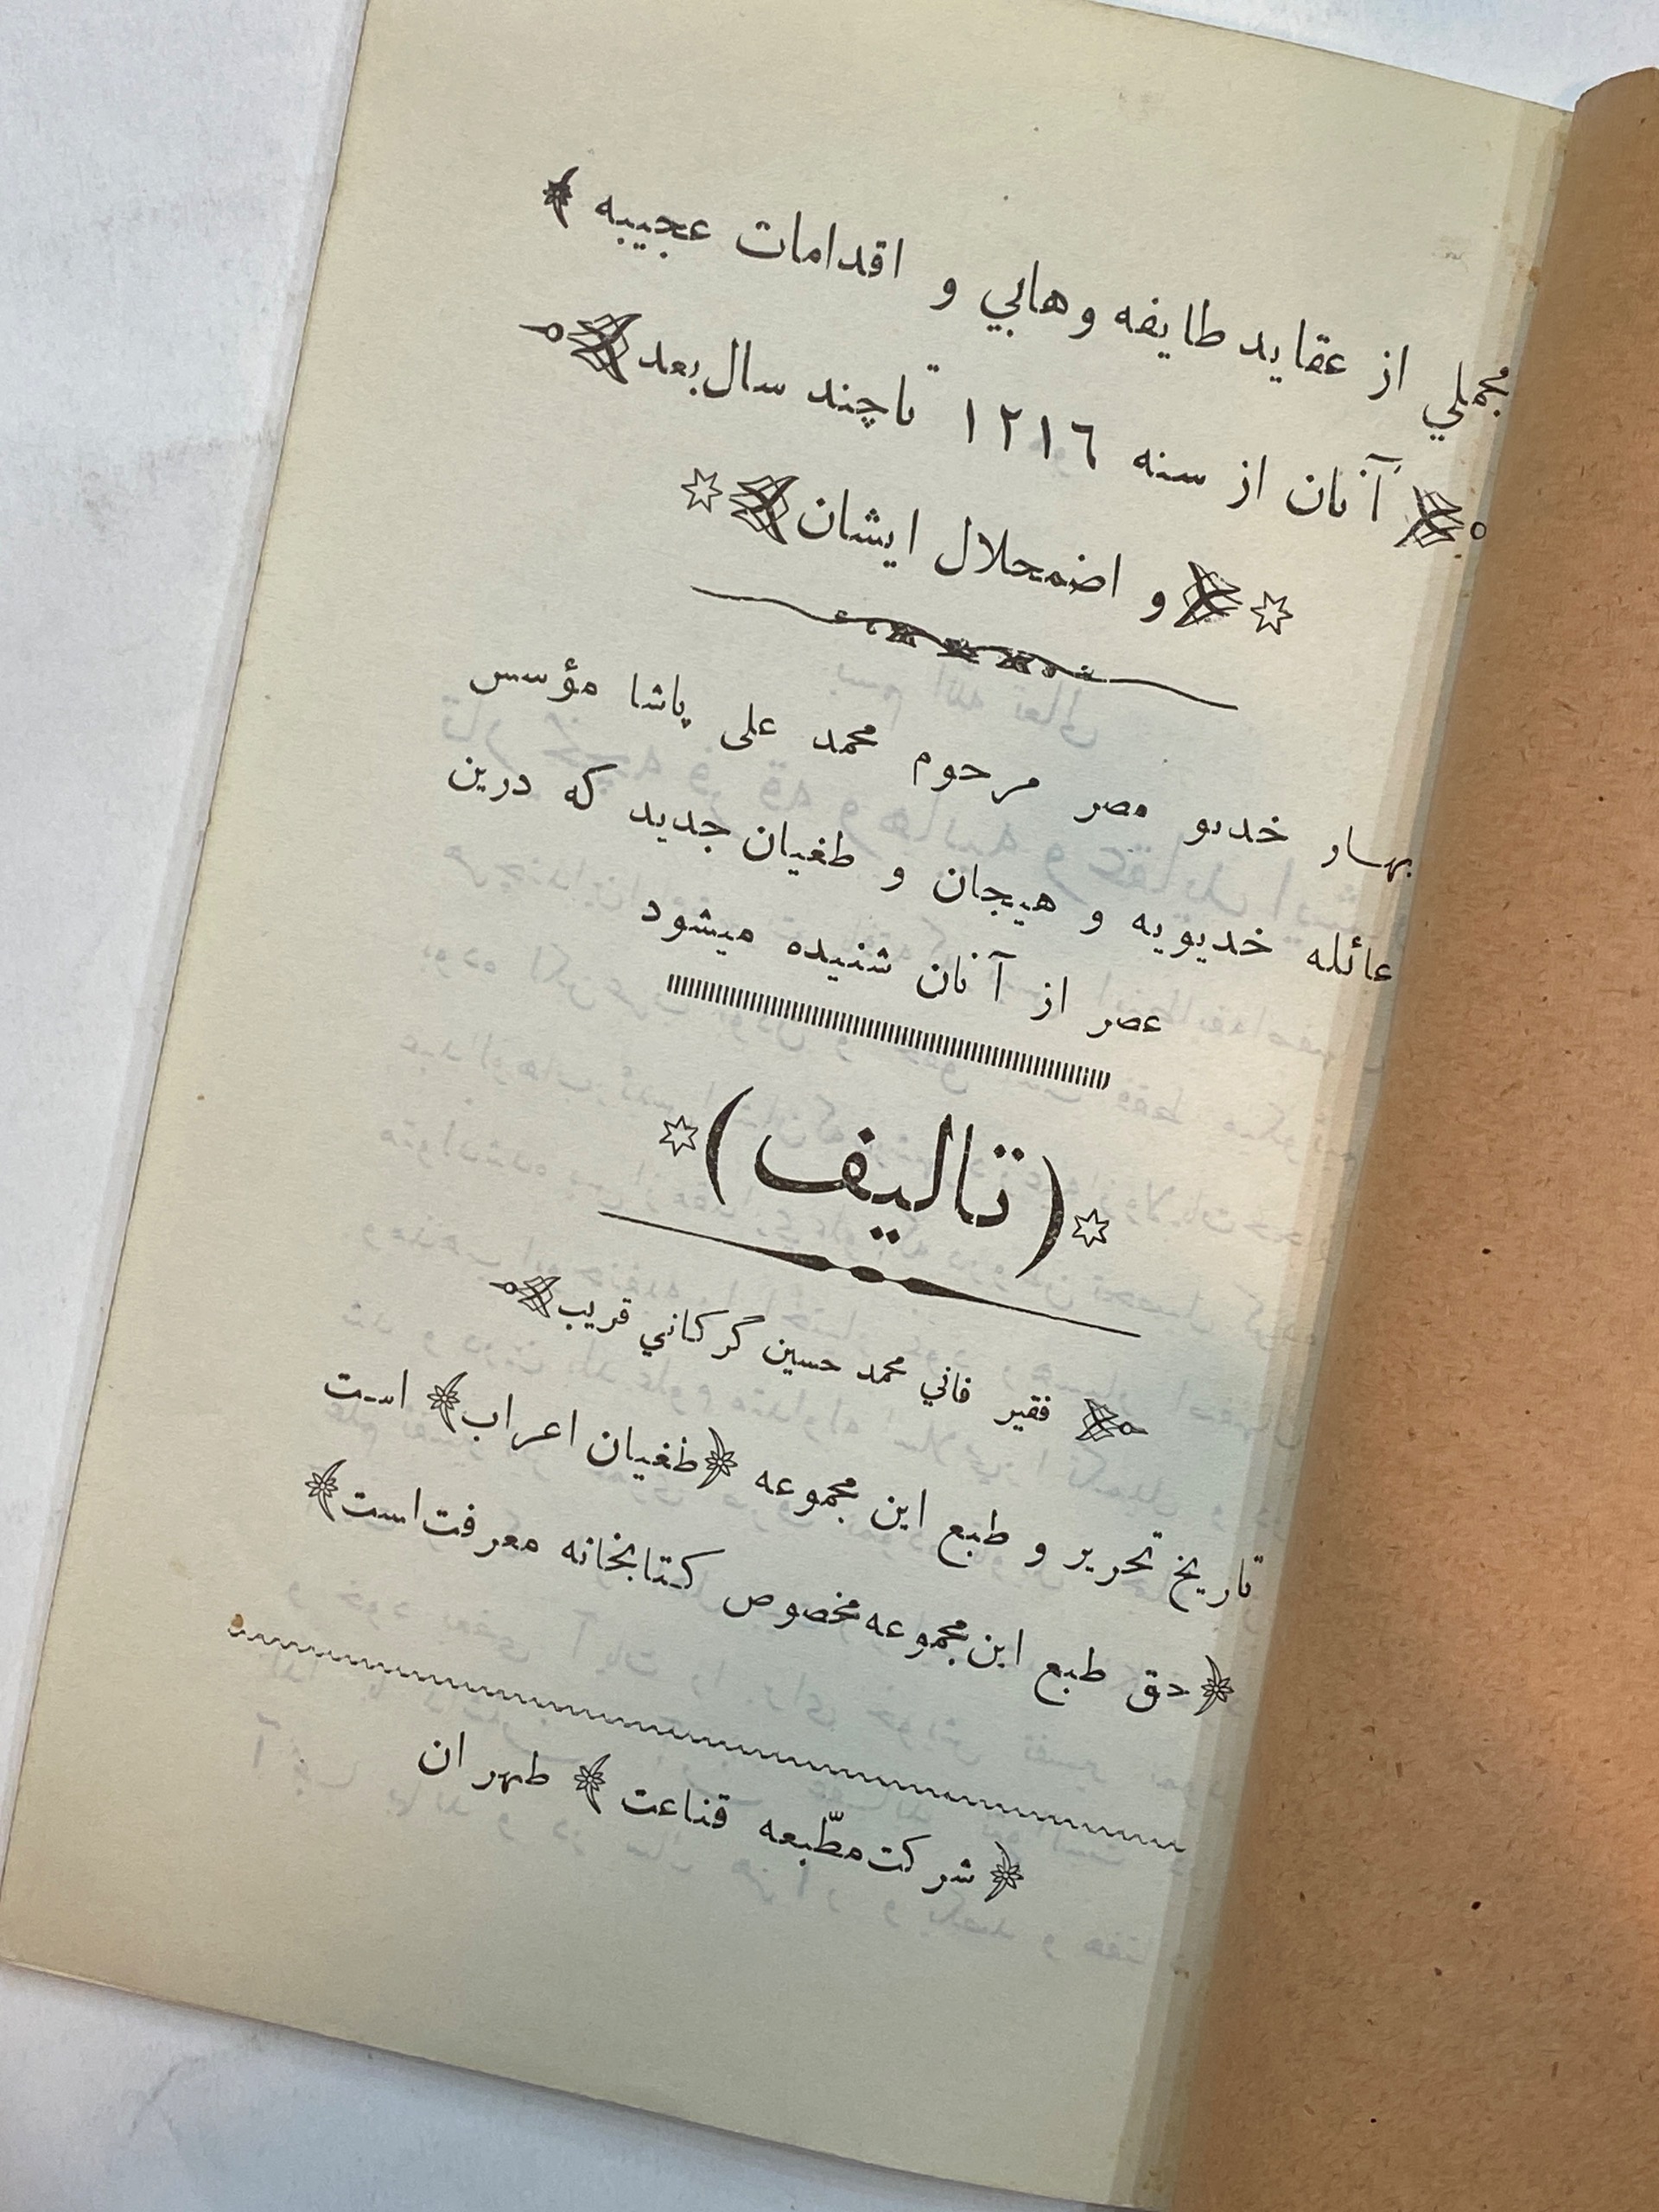 مجملي از عقايد طايفه وهابي و اقدامات عجيبه
آنان از سنه ١٢١٦ تاچند سال بعد
و اضمحلال ايشان
خديو مصر مرحوم محمد على پاشا مؤسس
عائله خديويه و هيجان و طغيان جديد كه درين
عصر از آنان شنيده ميشود
(تاليف)
فقير فاني محمد حسين گركاني قريب
تاريخ تحرير و طبع اين مجموعه ﴿طغيان اعراب﴾ است
﴿حق طبع اين مجموعه مخصوص كتابخانه معرفت است﴾
﴿شركت مطّبعه قناعت﴾ طهران